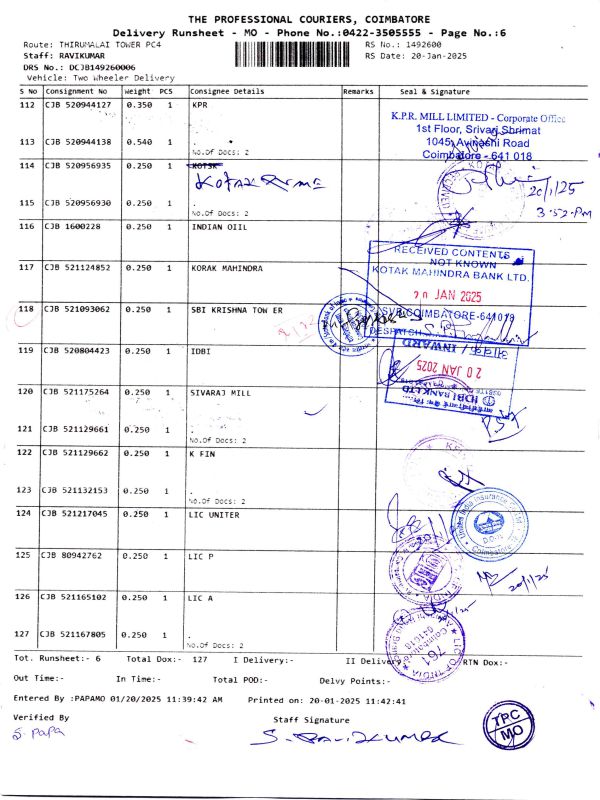 THE PROFESSIONAL COURIERS, COIMBATORE
Delivery Runsheet - MO - Phone No.:0422-3505555 - Page No.:6
Route: THIRUMALAI TOWER PC4 RS No.: 1492600
Staff: RAVIKUMAR RS Date: 20-Jan-2025
DRS No.: DCJB149260006
Vehicle: Two Wheeler Delivery
S No Consignment No Weight PCS Consignee Details Remarks Seal & Signature
112 CJB 520944127 0.350 1 KPR
K.P.R. MILL LIMITED - Corporate Office
1st Floor, Srivari Shrimat
1045, Avinashi Road
Coimbatore - 641 018
113 CJB 520944138 0.540 1 .
No.Of Docs: 2
114 CJB 520956935 0.250 1 KOTSK
KOTAK
20/1/25
3.52.PM
115 CJB 520956930 0.250 1 .
No.Of Docs: 2
116 CJB 1600228 0.250 1 INDIAN OIIL
RECEIVED CONTENTS
NOT KNOWN
KOTAK MAHINDRA BANK LTD.
20 JAN 2025
COIMBATORE-641018
DESPATCH
117 CJB 521124852 0.250 1 KORAK MAHINDRA
118 CJB 521093062 0.250 1 SBI KRISHNA TOW ER
119 CJB 520804423 0.250 1 IDBI
INWARD
20 JAN 2025
IDBI BANK LTD
120 CJB 521175264 0.250 1 SIVARAJ MILL
121 CJB 521129661 0.250 1 .
No.Of Docs: 2
122 CJB 521129662 0.250 1 K FIN
123 CJB 521132153 0.250 1 .
No.Of Docs: 2
124 CJB 521217045 0.250 1 LIC UNITER
United India Insurance
Coimbatore
125 CJB 80942762 0.250 1 LIC P
20/1/25
126 CJB 521165102 0.250 1 LIC A
127 CJB 521167805 0.250 1 .
No.Of Docs: 2
LIC OF INDIA
761
Tot. Runsheet:- 6 Total Dox:- 127 I Delivery:- II Delivery:- RTN Dox:-
Out Time:- In Time:- Total POD:- Delvy Points:-
Entered By :PAPAMO 01/20/2025 11:39:42 AM Printed on: 20-01-2025 11:42:41
Verified By Staff Signature
S. Papa
S. Ravikumar
TPC
MO